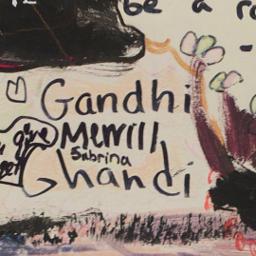 be a
Gandhi
give Merrill
Sabrina
Ghandi